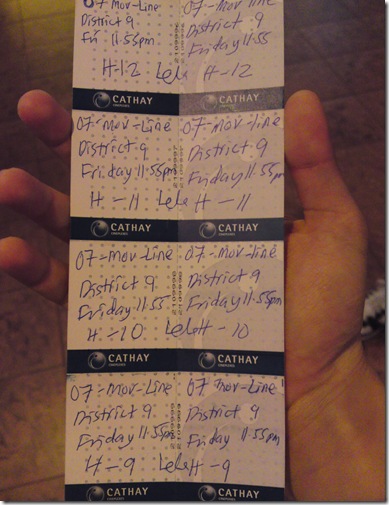 07-Mov-Line
District 9
Fri 11:55pm
H-12 Lele
CATHAY
CINEPLEXES
07-Mov-line
District 9
Friday 11:55
H-12
CATHAY
CINEPLEXES
07-Mov-Line
District 9
Friday 11:55pm
H-11 Lele
CATHAY
CINEPLEXES
07-Mov-Line
District 9
Friday 11:55pm
H-11
CATHAY
CINEPLEXES
07-Mov-Line
District 9
Friday 11:55
H-10 Lele
CATHAY
CINEPLEXES
07-Mov-Line
District 9
Friday 11:55pm
H-10
CATHAY
CINEPLEXES
07-Mov-Line
District 9
Friday 11:55pm
H-9 Lele
CATHAY
07 Mov-Line
District 9
Friday 11:55pm
H-9
CATHAY